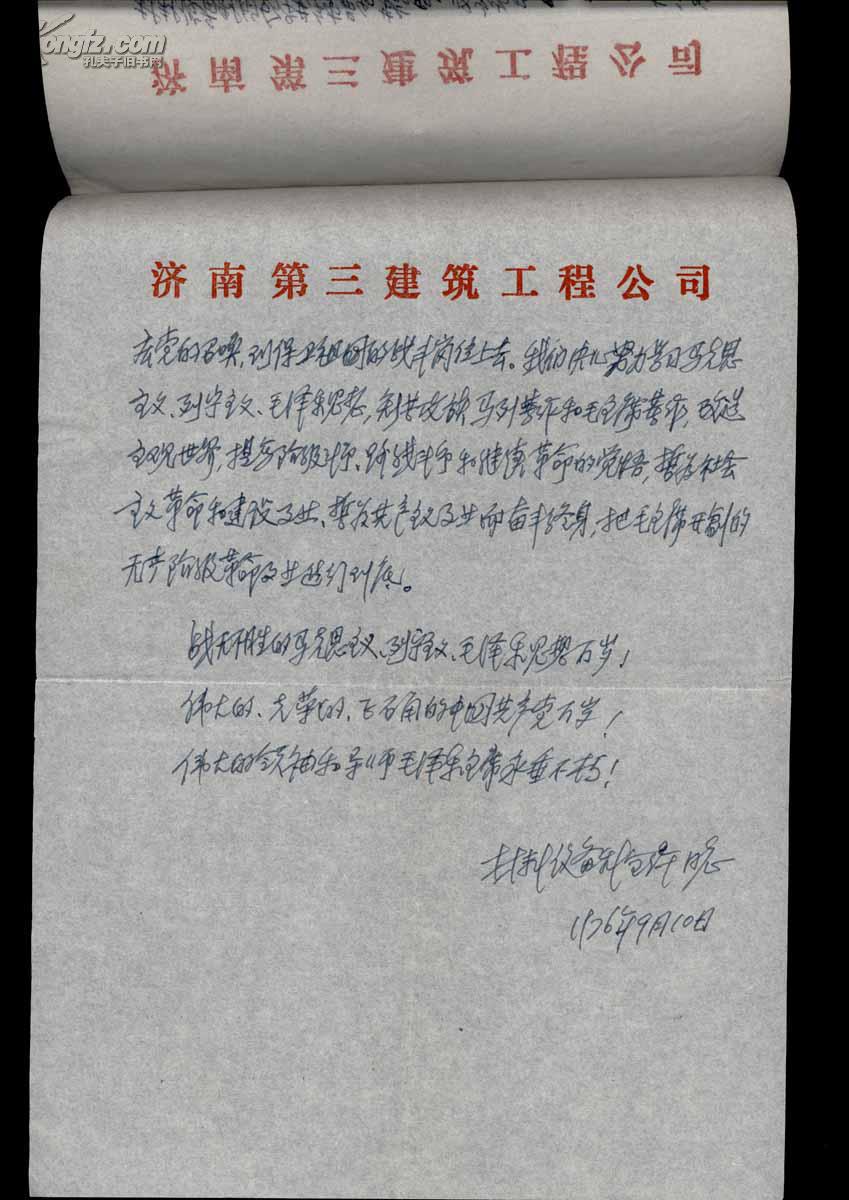 孔夫子旧书网
济南第三建筑工程公司
济南第三建筑工程公司
党的召唤,到保卫祖国的战斗岗位上去。我们决心努力学习马克思
主义、列宁主义、毛泽东思想,刻苦攻读马列著作和毛主席著作,改造
主观世界,提高阶级斗争、路线斗争和继续革命的觉悟,誓为社会
主义革命和建设事业、誓为共产主义事业而奋斗终身,把毛主席开创的
无产阶级革命事业进行到底。
战无不胜的马克思主义、列宁主义、毛泽东思想万岁!
伟大的、光荣的、正确的中国共产党万岁!
伟大的领袖和导师毛泽东主席永垂不朽!
材料设备科全体同志
1976年9月10日